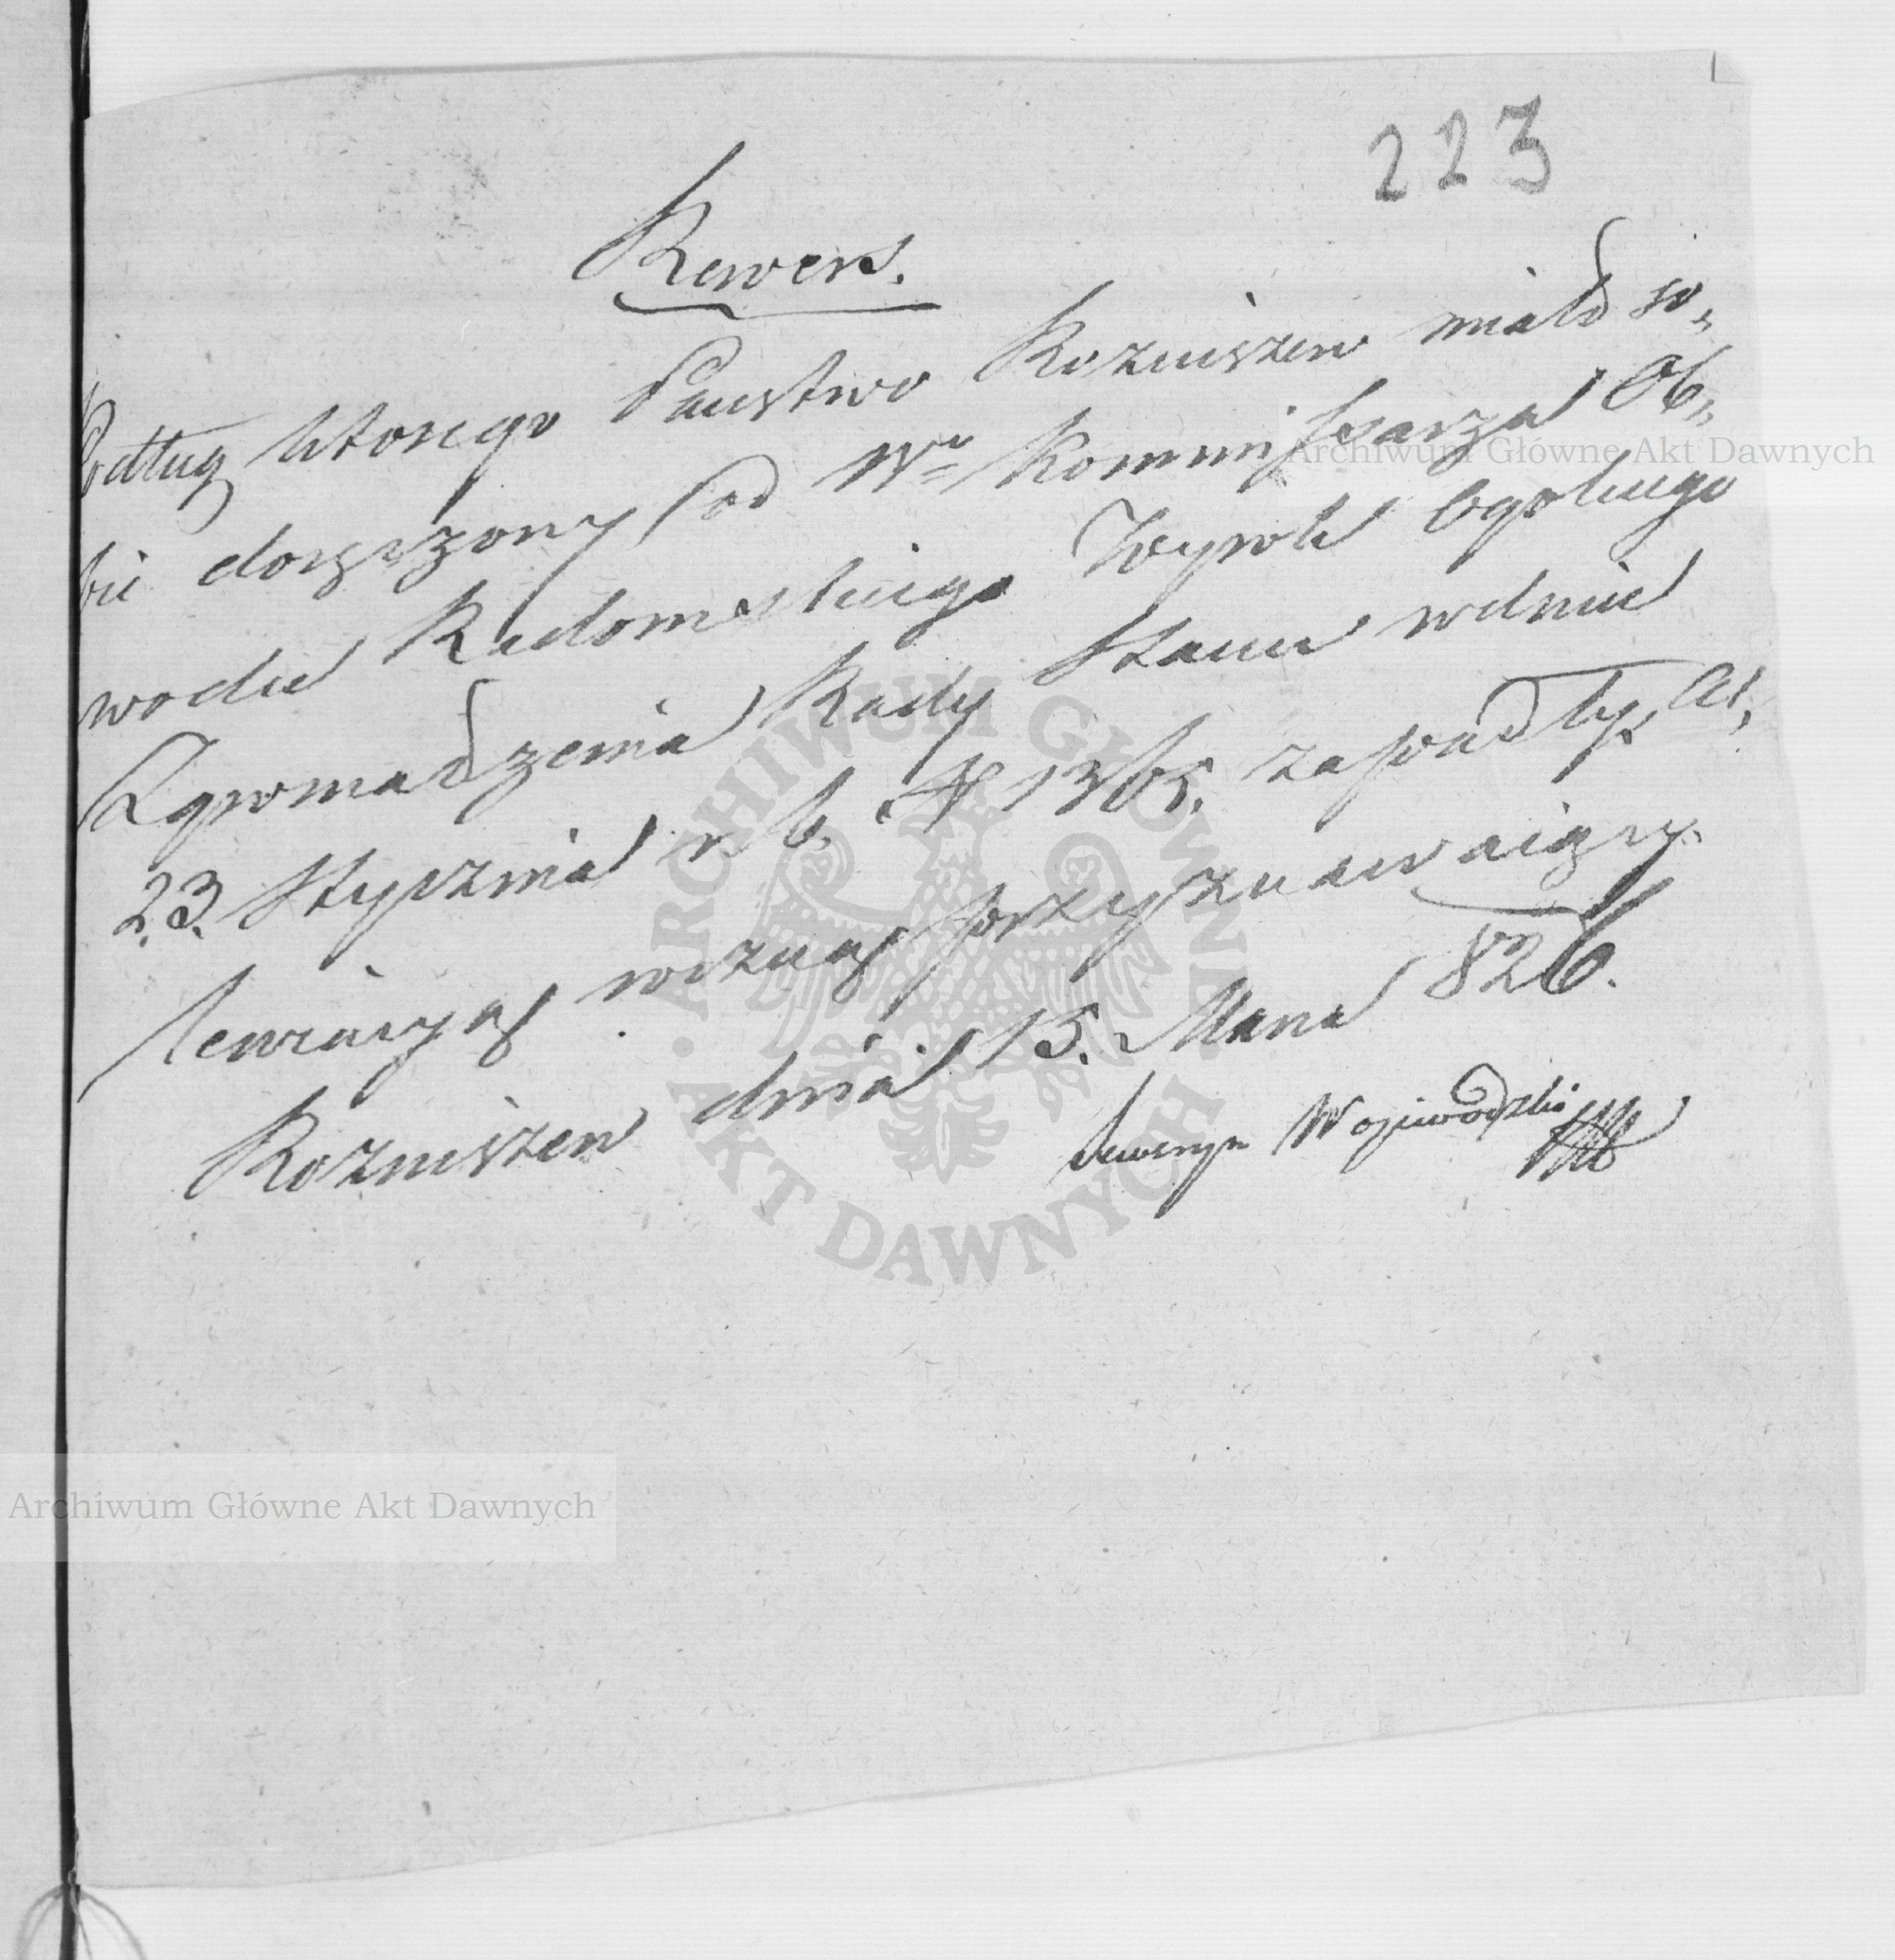 223
Rewers.
Podług ktorego Państwo Rozniszew miało so„
bie doręczony od Wo Kommissarza Ob„
wodu Radomskiego Wyrok Ogolnego
Zgromadzenia Rady Stanu w dniu
23. Stycznia r. b. N 1365. zapadły,
wczas przyznawaiący.
Rozniszew dnia 15. Marca 826.
Seweryn Wojewodzki
Archiwum Główne Akt Dawnych
ARCHIWUM GŁÓWNE AKT DAWNYCH
Archiwum Główne Akt Dawnych